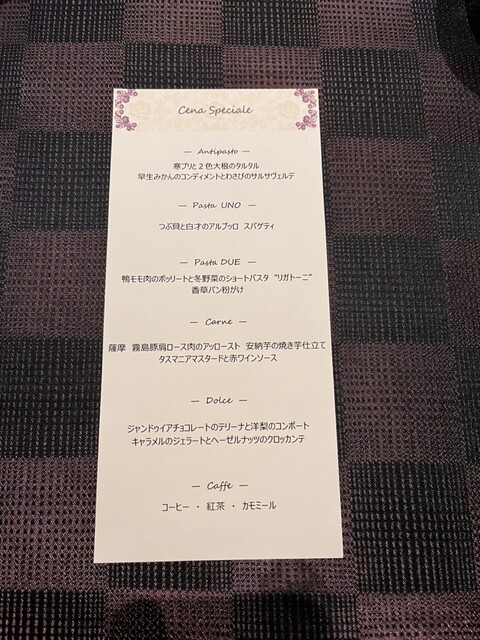 Cena Speciale
— Antipasto —
寒ブリと２色大根のタルタル
早生みかんのコンディメントとわさびのサルサヴェルデ
— Pasta UNO —
つぶ貝と白才のアルブッロ スパゲティ
— Pasta DUE —
鴨モモ肉のボッリートと冬野菜のショートパスタ "リガトーニ"
香草パン粉がけ
— Carne —
薩摩 霧島豚肩ロース肉のアッロースト 安納芋の焼き芋仕立て
タスマニアマスタードと赤ワインソース
— Dolce —
ジャンドゥイアチョコレートのテリーナと洋梨のコンポート
キャラメルのジェラートとヘーゼルナッツのクロッカンテ
— Caffe —
コーヒー ・ 紅茶 ・ カモミール